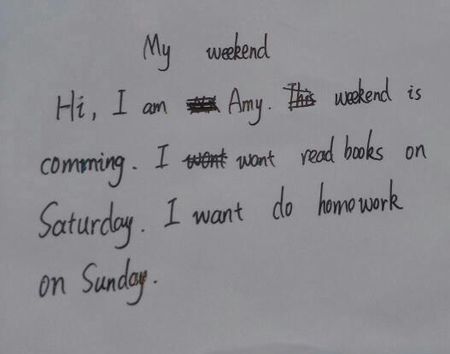 My weekend
Hi, I am Amy. This weekend is
comming. I want want read books on
Saturday. I want do homework
on Sunday.